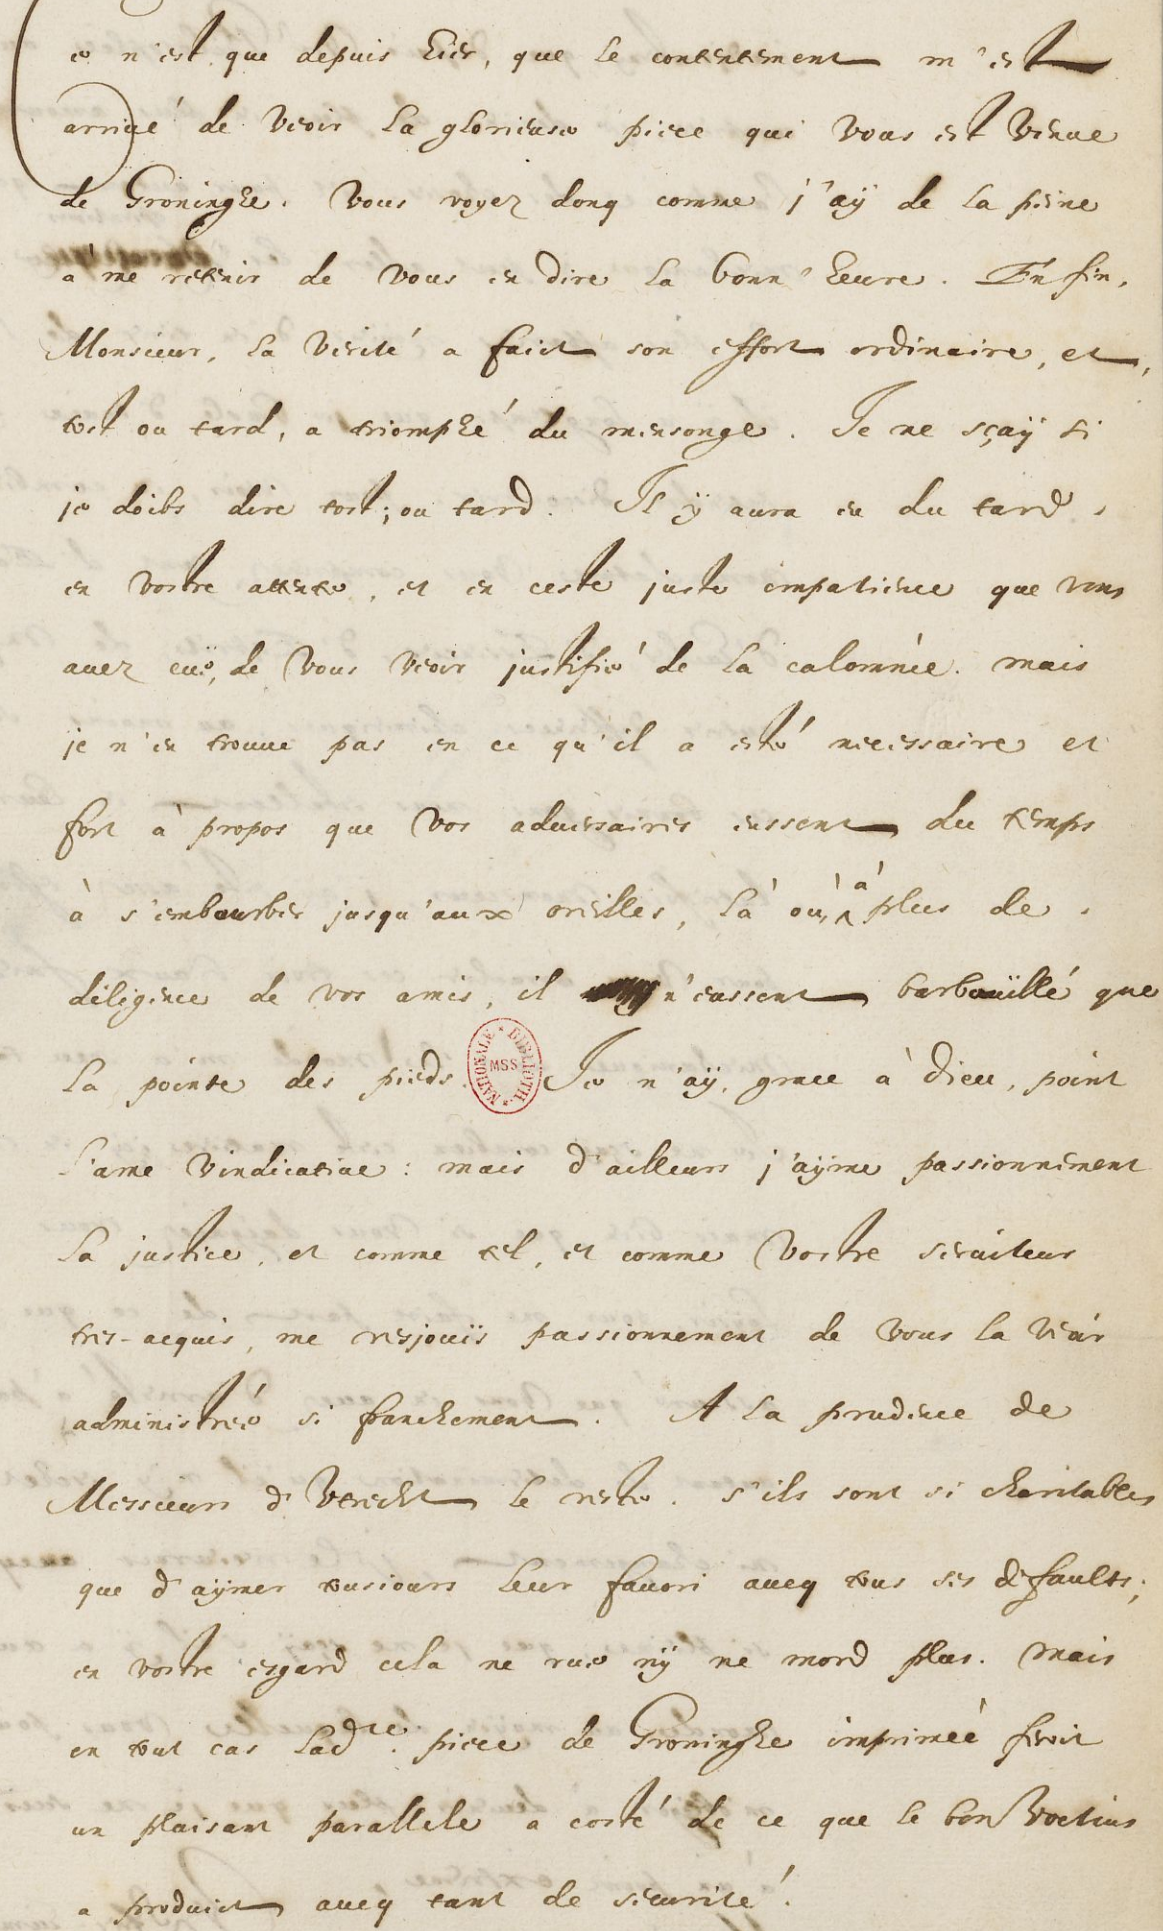 Ce n'est que depuis hier, que le contentement m'est
arriué de veoir la glorieuse piece qui vous est venue
de Groninghe. Vous voyez donq comme j'aÿ de la peine
a me retenir de vous en dire la bonn'heure. En fin,
Monsieur, la verité a faict son effort ordinaire, et,
tost ou tard, a triomphé du mensonge. Je ne sçaÿ si
je doibs dire tost; ou tard. Il ÿ aura eu du tard
en vostre attente, et en ceste juste impatience que vous
auez euë, de vous veoir justifié de la calomnie. mais
je n'en trouue pas en ce qu'il a esté necessaire et
fort à propos que vos aduersaires eussent du temps
à s'embourber jusqu'aux oreilles, là où, à plus de
diligence de vos amis, il n'eussent barbouïllé que
la pointe des pieds. Je n'aÿ, grace à Dieu, point
l'ame vindicatiue: mais d'ailleurs j'aÿme passionnement
la justice, et comme tel, et comme vostre seruiteur
tres-acquis, me resjouïs passionnement de vous la veoir
administrée si franchement. A la prudence de
Messieurs d'Vtrecht le reste. s'ils sont si charitables
que d'aÿmer tousiours leur fauori aueq tous ses defaults;
en vostre esgard cela ne rue nÿ ne mord plus. mais
en tout cas lad.te piece de Groninghe impriméé feroit
un plaisant parallele a costé de ce que le bon Voetius
a produict aueq tant de securité.
BIBLIOTH. NATIONALE MSS